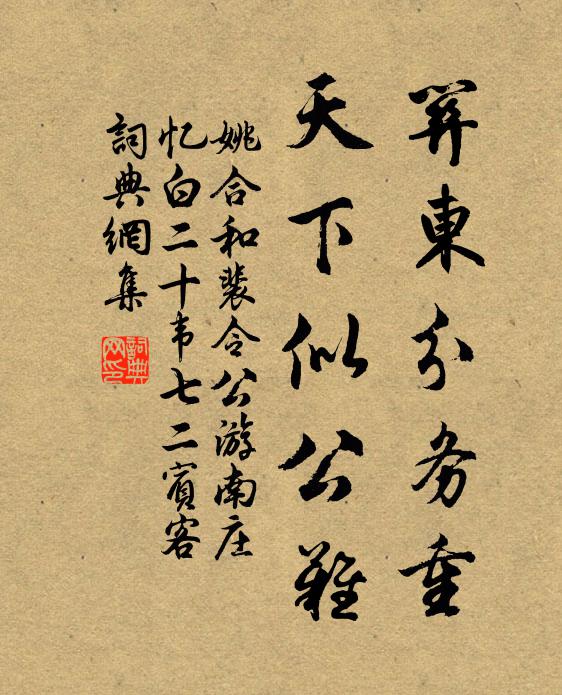 關東分务重
天下似公難
姚合和裴令公游南庄
忆白二十韦七二賓客
詞典網集
詞典网印